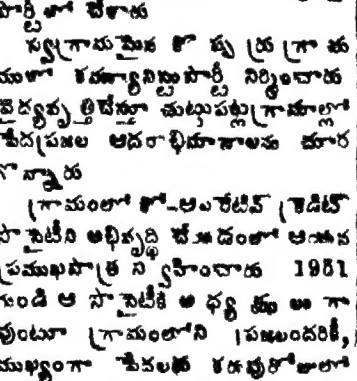 పార్టీ లో చేరారు
స్వగ్రామమైన కొ వ్వు రు గ్రా మ
ములో కమ్యూనిస్టుపార్టీ నిర్మించారు
వైద్యవృత్తిచేస్తూ చుట్టుపట్లగ్రామాల్లో
పేదప్రజల ఆదరాభిమానాలను చూర
గొన్నారు
గ్రామంలో కో-ఆపరేటివ్ క్రెడిట్
సొసైటీని అభివృద్ధి చేయడంలో ఆయన
ప్రముఖపాత్ర ని ర్వహించారు 1951
నుండి ఆ సొసైటీకి అ ధ్య క్షు లు గా
వుంటూ గ్రామంలోని ప్రజలందరికీ,
ముఖ్యంగా పేదలకు కరువురోజులలో